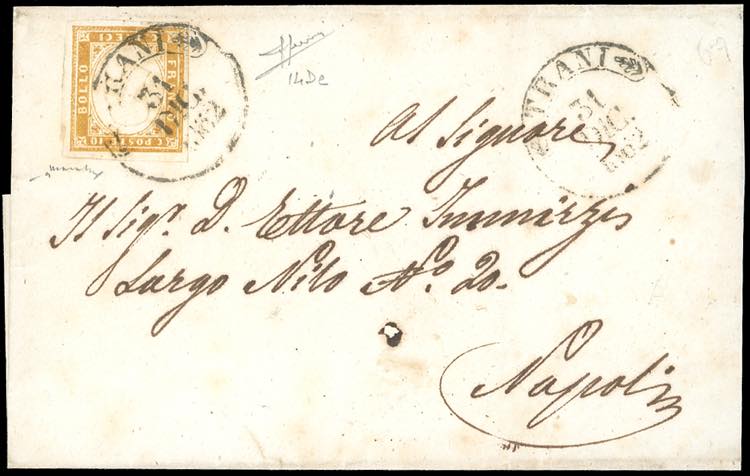 FRANCO BOLLO
DIECI
C. POSTE 10
TRANI
31
DIC.
1862
TRANI
31
DIC.
1862
14De
Al Signore
Il Sigr. D. Ettore Immirzi
Largo Nilo No. 20.
Napoli